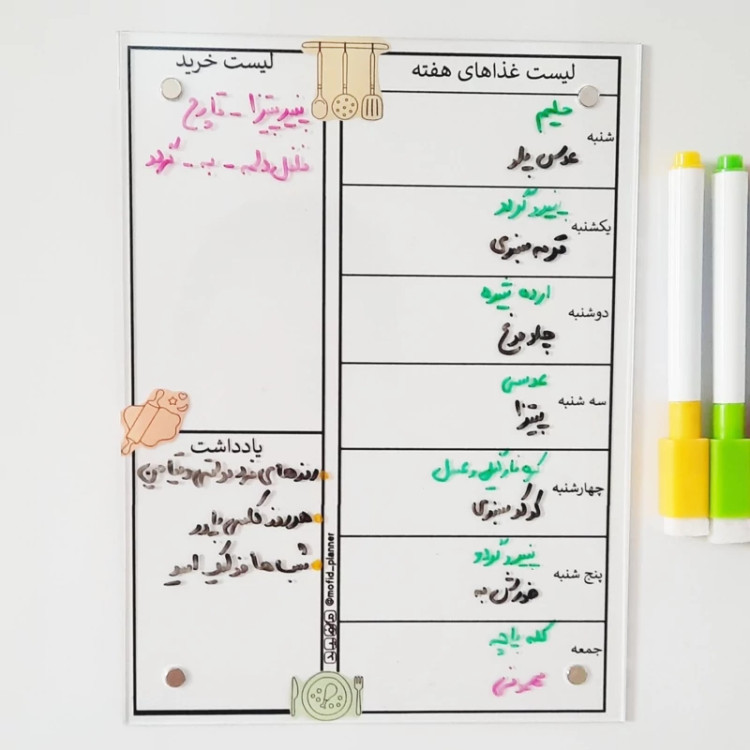 لیست غذاهای هفته
شنبه
حلیم
عدس پلو
یکشنبه
پنیر گردو
قرمه سبزی
دوشنبه
ارده شیره
چلو مرغ
سه شنبه
عدسی
پیتزا
چهارشنبه
کره نارگیلی و عسل
کوکو سبزی
پنج شنبه
پنیر گردو
خورش به
جمعه
کله پاچه
مهمونی
لیست خرید
پنیر پیتزا - قارچ
فلفل دلمه - به - گردو
یادداشت
روزهای فرد
هر روز
شب ها
@mofid_planner